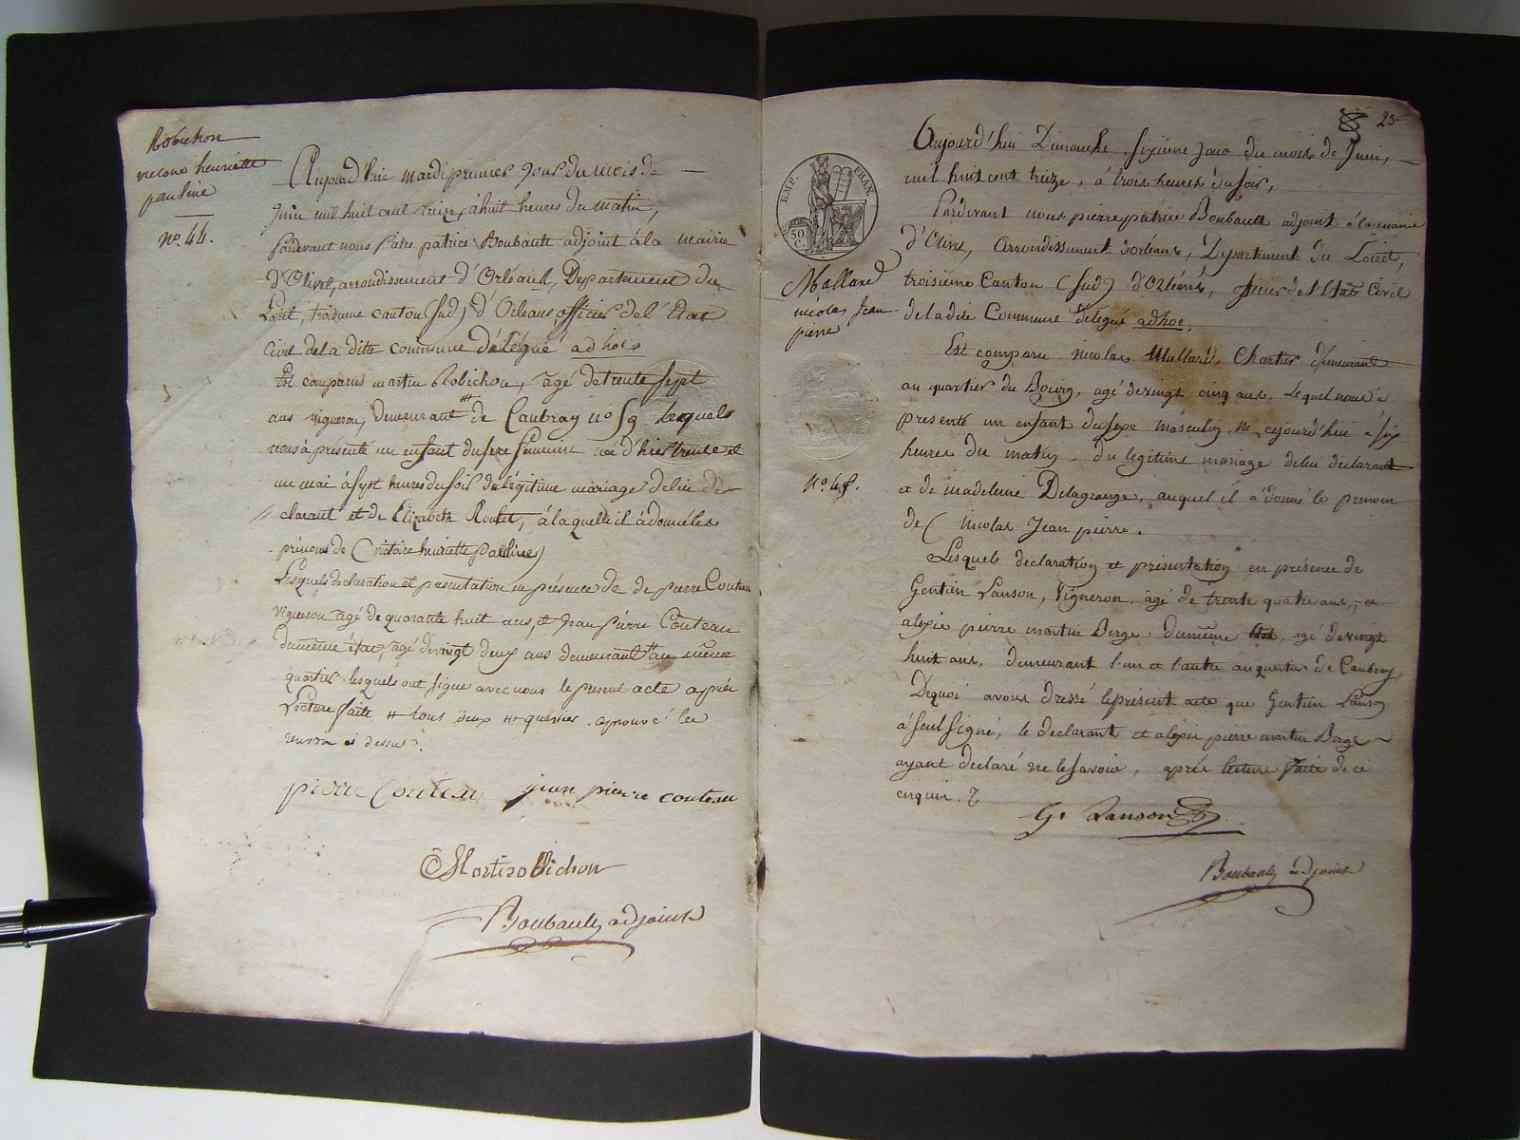 Robichon
henriette
pauline
no. 44.
Aujourd'hui mardi premier jour du mois de
Juin mil huit cent treize, à huit heures du matin,
Pardevant nous Pierre patrice Boubault adjoint à la mairie
d'Olivet, arrondissement d'Orléans, Departement du
Loiret, troisieme canton (Sud) d'Orleans, officier de l'Etat
Civil de la dite commune délégué ad hoc
Est comparu martin Robichon, agé de trente sept
ans vigneron, demeurant # de Caubray no 59 lequel
nous à présenté un enfant du sexe feminin né d'hier trente et
un mai à sept heures du soir du légitime mariage de lui de-
clarant et de Elizabeth Roulet, à laquelle il à donné les
prénoms de (Victoire henriette pauline)
Lesquels declaration et presentation en présence de de pierre Couteau
vigneron agé de quarante huit ans, et Jean pierre Couteau
du même état, agé de vingt deux ans demeurant au même
quartier. lesquels ont signé avec nous le present acte après
Lecture faite # tous deux # quartier. approuvé les
renvois ci dessus.
pierre Couteau jean pierre couteau
Martin robichon
Boubault adjoint
25
EMP. FRAN.
50 C.
Mallard
nicolas Jean
pierre
No. 45.
Aujourd'hui Dimanche sixième jour du mois de Juin,
mil huit cent treize, à trois heures du soir,
Pardevant nous pierre patrice Boubault adjoint à la mairie
d'Olivet, arrondissement d'orléans, Departement du Loiret,
troisième Canton (Sud) d'Orléans, de l'Etat Civil
de la dite Commune délégué ad hoc,
Est comparu nicolas Mallard, Chartier demeurant
au quartier du Bourg, agé de vingt cinq ans. Lequel nous à
presenté un enfant du sexe masculin, né cejourd'hui à six
heures du matin, du legitime mariage de lui declarant
et de madeleine Delagrange, auquel il à donné le prenom
de ( nicolas Jean pierre.
Lesquels declaration et présentation en présence de
Gentien Lanson, Vigneron, agé de trente quatre ans, et
alexis pierre martin Berge, du même état, agé de vingt
huit ans, demeurant l'un et l'autre au quartier de Caubray,
De quoi avons dressé le présent acte que Gentien Lanson
à seul signé, le declarant et alexis pierre martin Berge
ayant declaré ne le savoir, après lecture faite de ce
enquis.
Gn Lanson
Boubault adjoint